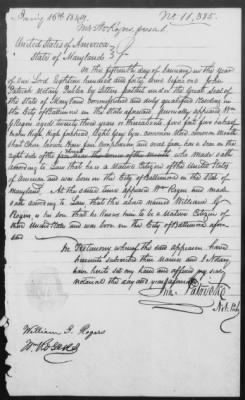 No. 11,985.
United States of America
State of Maryland
On the fifteenth day of January in the year
of our Lord Eighteen hundred and forty before me John
Notary Public by letters patent under the Great Seal
of the State of Maryland commissioned and duly qualified Residing in
the City of Baltimore in the State aforesaid personally appeared Wm
Rogers aged twenty three years or thereabouts five feet five
inches high high forehead light grey eyes common nose common mouth
Chin brown hair fair complexion and oval face has a scar on the
right side of the who made oath
according to Law that he is a Native Citizen of the United States
of America and was born in the City of Baltimore in the State of
Maryland. At the same time appeared Wm and made
oath according to Law, that the above named William G.
Rogers, is to him that he knows him to be a Native Citizen of
these United States and was born in the City of Baltimore afore
said
In Testimony whereof the said appearers have
hereunto subscribed their names and I Notary
have hereto set my hand and affixed my seal
notarial the day and year aforesaid
Not. Pub.
William G. Rogers